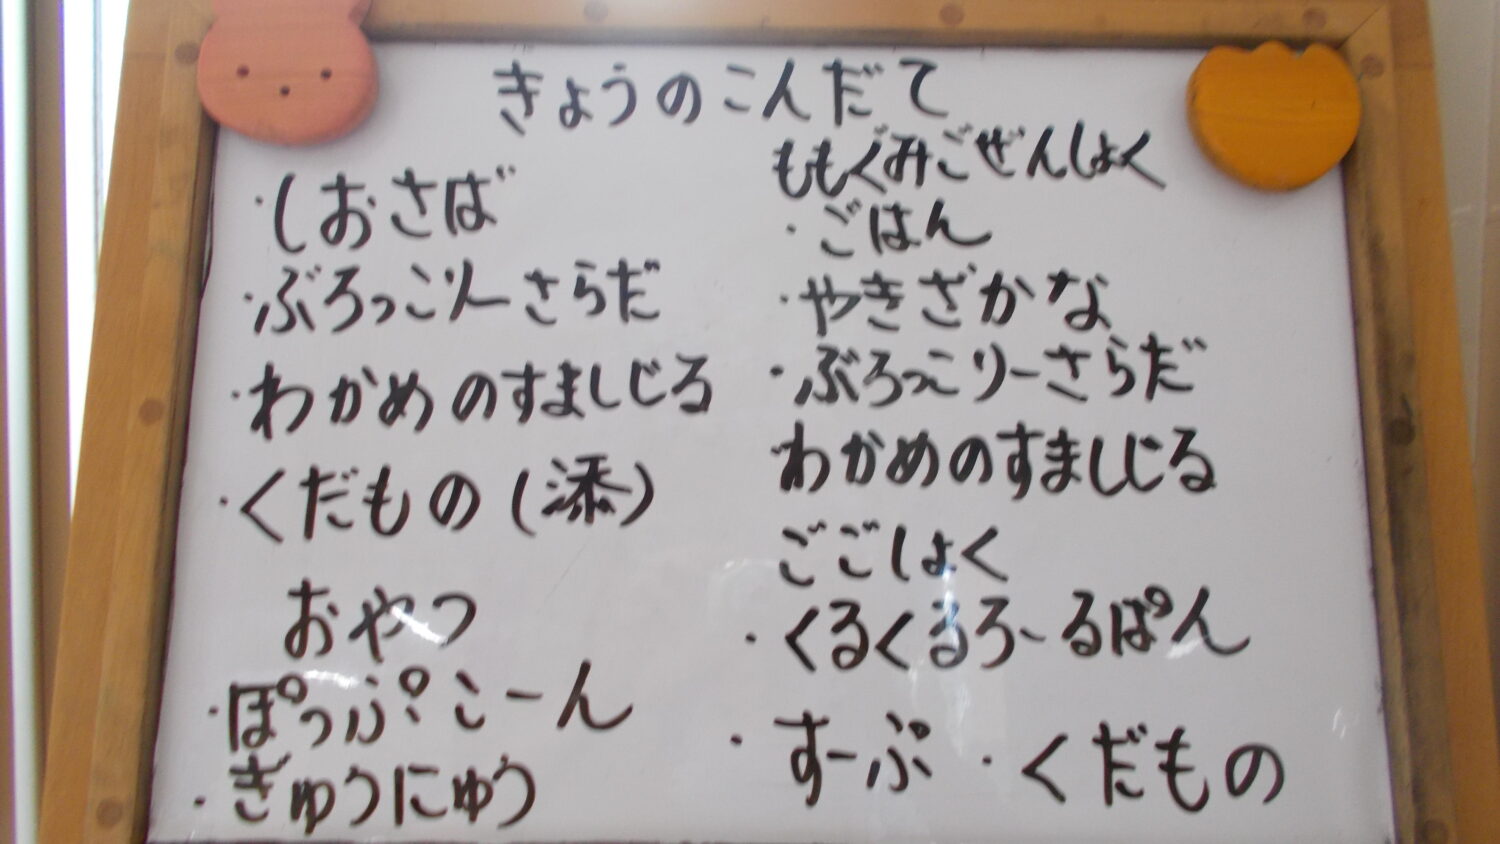 きょうのこんだて
・しおさば
・ぶろっこりーさらだ
・わかめのすましじる
・くだもの(添)
おやつ
・ぽっぷこーん
・ぎゅうにゅう
ももぐみごぜんしょく
・ごはん
・やきざかな
・ぶろっこりーさらだ
わかめのすましじる
ごごしょく
・くるくるろーるぱん
・すーぷ・くだもの